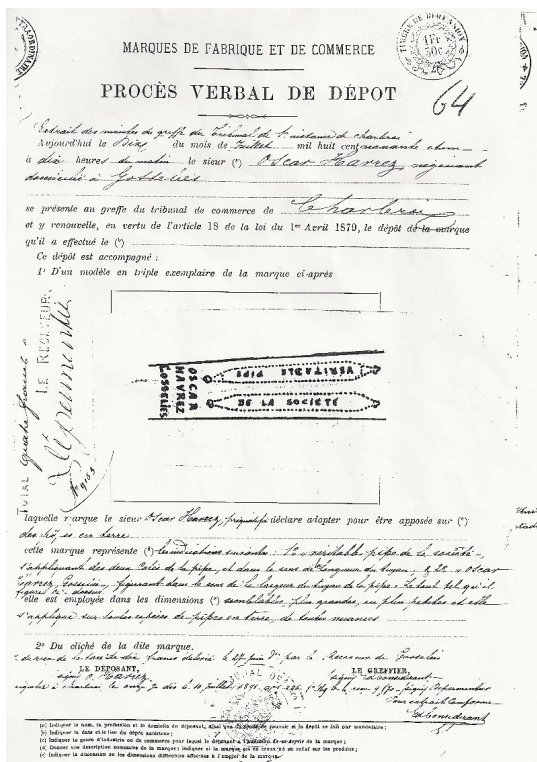 TIMBRE DE DIMENSION
1 Fr
50c
MARQUES DE FABRIQUE ET DE COMMERCE
PROCÈS VERBAL DE DÉPOT
64
Extrait des minutes du greffe du Tribunal de
Aujourd'hui le Dix du mois de Juillet mil huit cent nonante
à dix heures du matin le sieur (a) Oscar Havrez, négociant
domicilié à Gosselies
se présente au greffe du tribunal de commerce de Charleroi
et y renouvelle, en vertu de l'article 18 de la loi du 1er Avril 1879, le dépôt de la marque
qu'il a effectué le (b)
Ce dépôt est accompagné :
1° D'un modèle en triple exemplaire de la marque ci-après
LE RECEVEUR
TOTAL quatre francs
No 9153
OSCAR
HAVREZ
GOSSELIES
VERITABLE PIPE
DE LA SOCIÉTÉ
laquelle marque le sieur Oscar Havrez, déclare adopter pour être apposée sur (c)
des pipes en terre
cette marque représente (d) les indications suivantes : 1° "véritable pipe de la société",
s'appliquant des deux côtés de la pipe, et dans le sens de longueur du tuyau, & 2° "Oscar
Havrez Gosselies", figurant dans le sens de la largeur du tuyau de la pipe. Le tout tel qu'il
figure ci-dessus.
elle est employée dans les dimensions (e) semblables, plus grandes, ou plus petites et elle
s'applique sur toutes espèces de pipes en terre, de toutes nuances
2° Du cliché de la dite marque.
dix francs délivré le 27 Juin par le Receveur de Gosselies
LE DÉPOSANT, LE GREFFIER,
signé O. Havrez
à Charleroi le 10 juillet 1891
Pour extrait conforme
(a) Indiquer le nom, la profession et le domicile du déposant, ainsi que
(b) Indiquer la date et le lieu du dépôt antérieur ;
(c) Indiquer le genre d'industrie ou de commerce pour lequel le déposant a l'intention de se servir de la marque ;
(d) Donner une description sommaire de la marque ; indiquer si la marque est en creux ou en relief sur les produits ;
(e) Indiquer la dimension ou les dimensions différentes affectées à l'emploi de la marque.